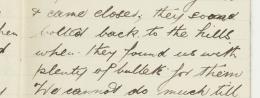 & came closer, they soon
bolted back to the hills
when they found us with
plenty of bullets for them
We cannot do much till